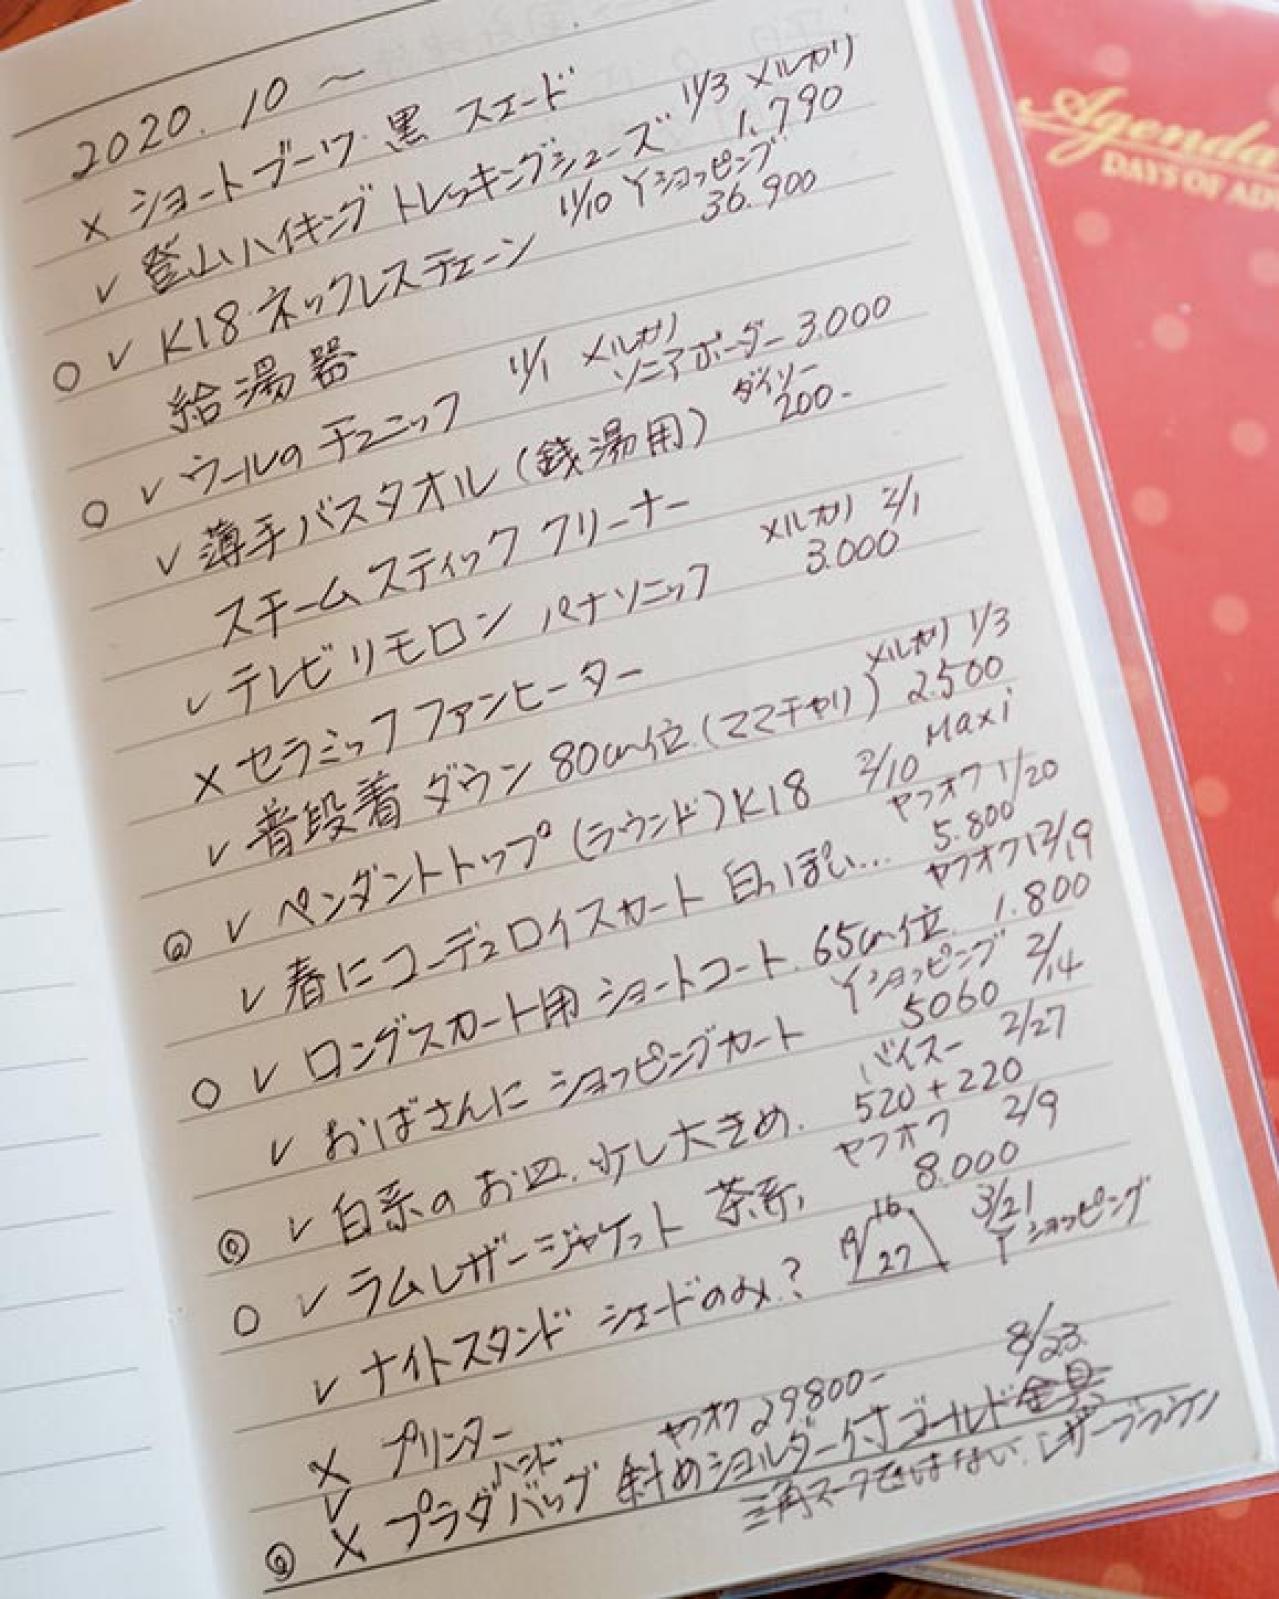 2020.10〜
× ショートブーツ・黒 スエード
✓ 登山ハイキング トレッキングシューズ 11/3 メルカリ 1,790
○ ✓ K18 ネックレスチェーン 11/10 Yショッピング 36.900
給湯器
○ ✓ ウールの チュニック 11/1 メルカリ ソニアボーダー 3.000
✓ 薄手バスタオル(銭湯用) ダイソー 200-
スチームスティック クリーナー
✓ テレビリモロン パナソニック メルカリ 2/1 3.000
× セラミックファンヒーター
✓ 普段着 ダウン 80cm位(ママチャリ) メルカリ 1/3 2.500
◎ ✓ ペンダントトップ(ラウンド)K18 2/10 Maxi
✓ 春にコーデュロイスカート 白っぽい… ヤフオク 1/20 5.800
○ ✓ ロングスカート用 ショートコート. 65cm位. ヤフオク 12/19 1.800
✓ おばさんに ショッピングカート Yショッピング 2/14 5060
◎ ✓ 白系の お皿. 少し大きめ. 2/27 520+220
○ ✓ ラムレザージャケット 茶系, ヤフオク 2/9 8.000
✓ ナイトスタンド シェードのみ? 19 16 27 3/21 Yショッピング
× プリンター
◎ ✓ × プラダ ハンド バッグ 斜めショルダー付 ゴールド金具 ヤフオク 29800- 8/23
三角マークではない. レザーブラウン
Agenda
DAYS OF